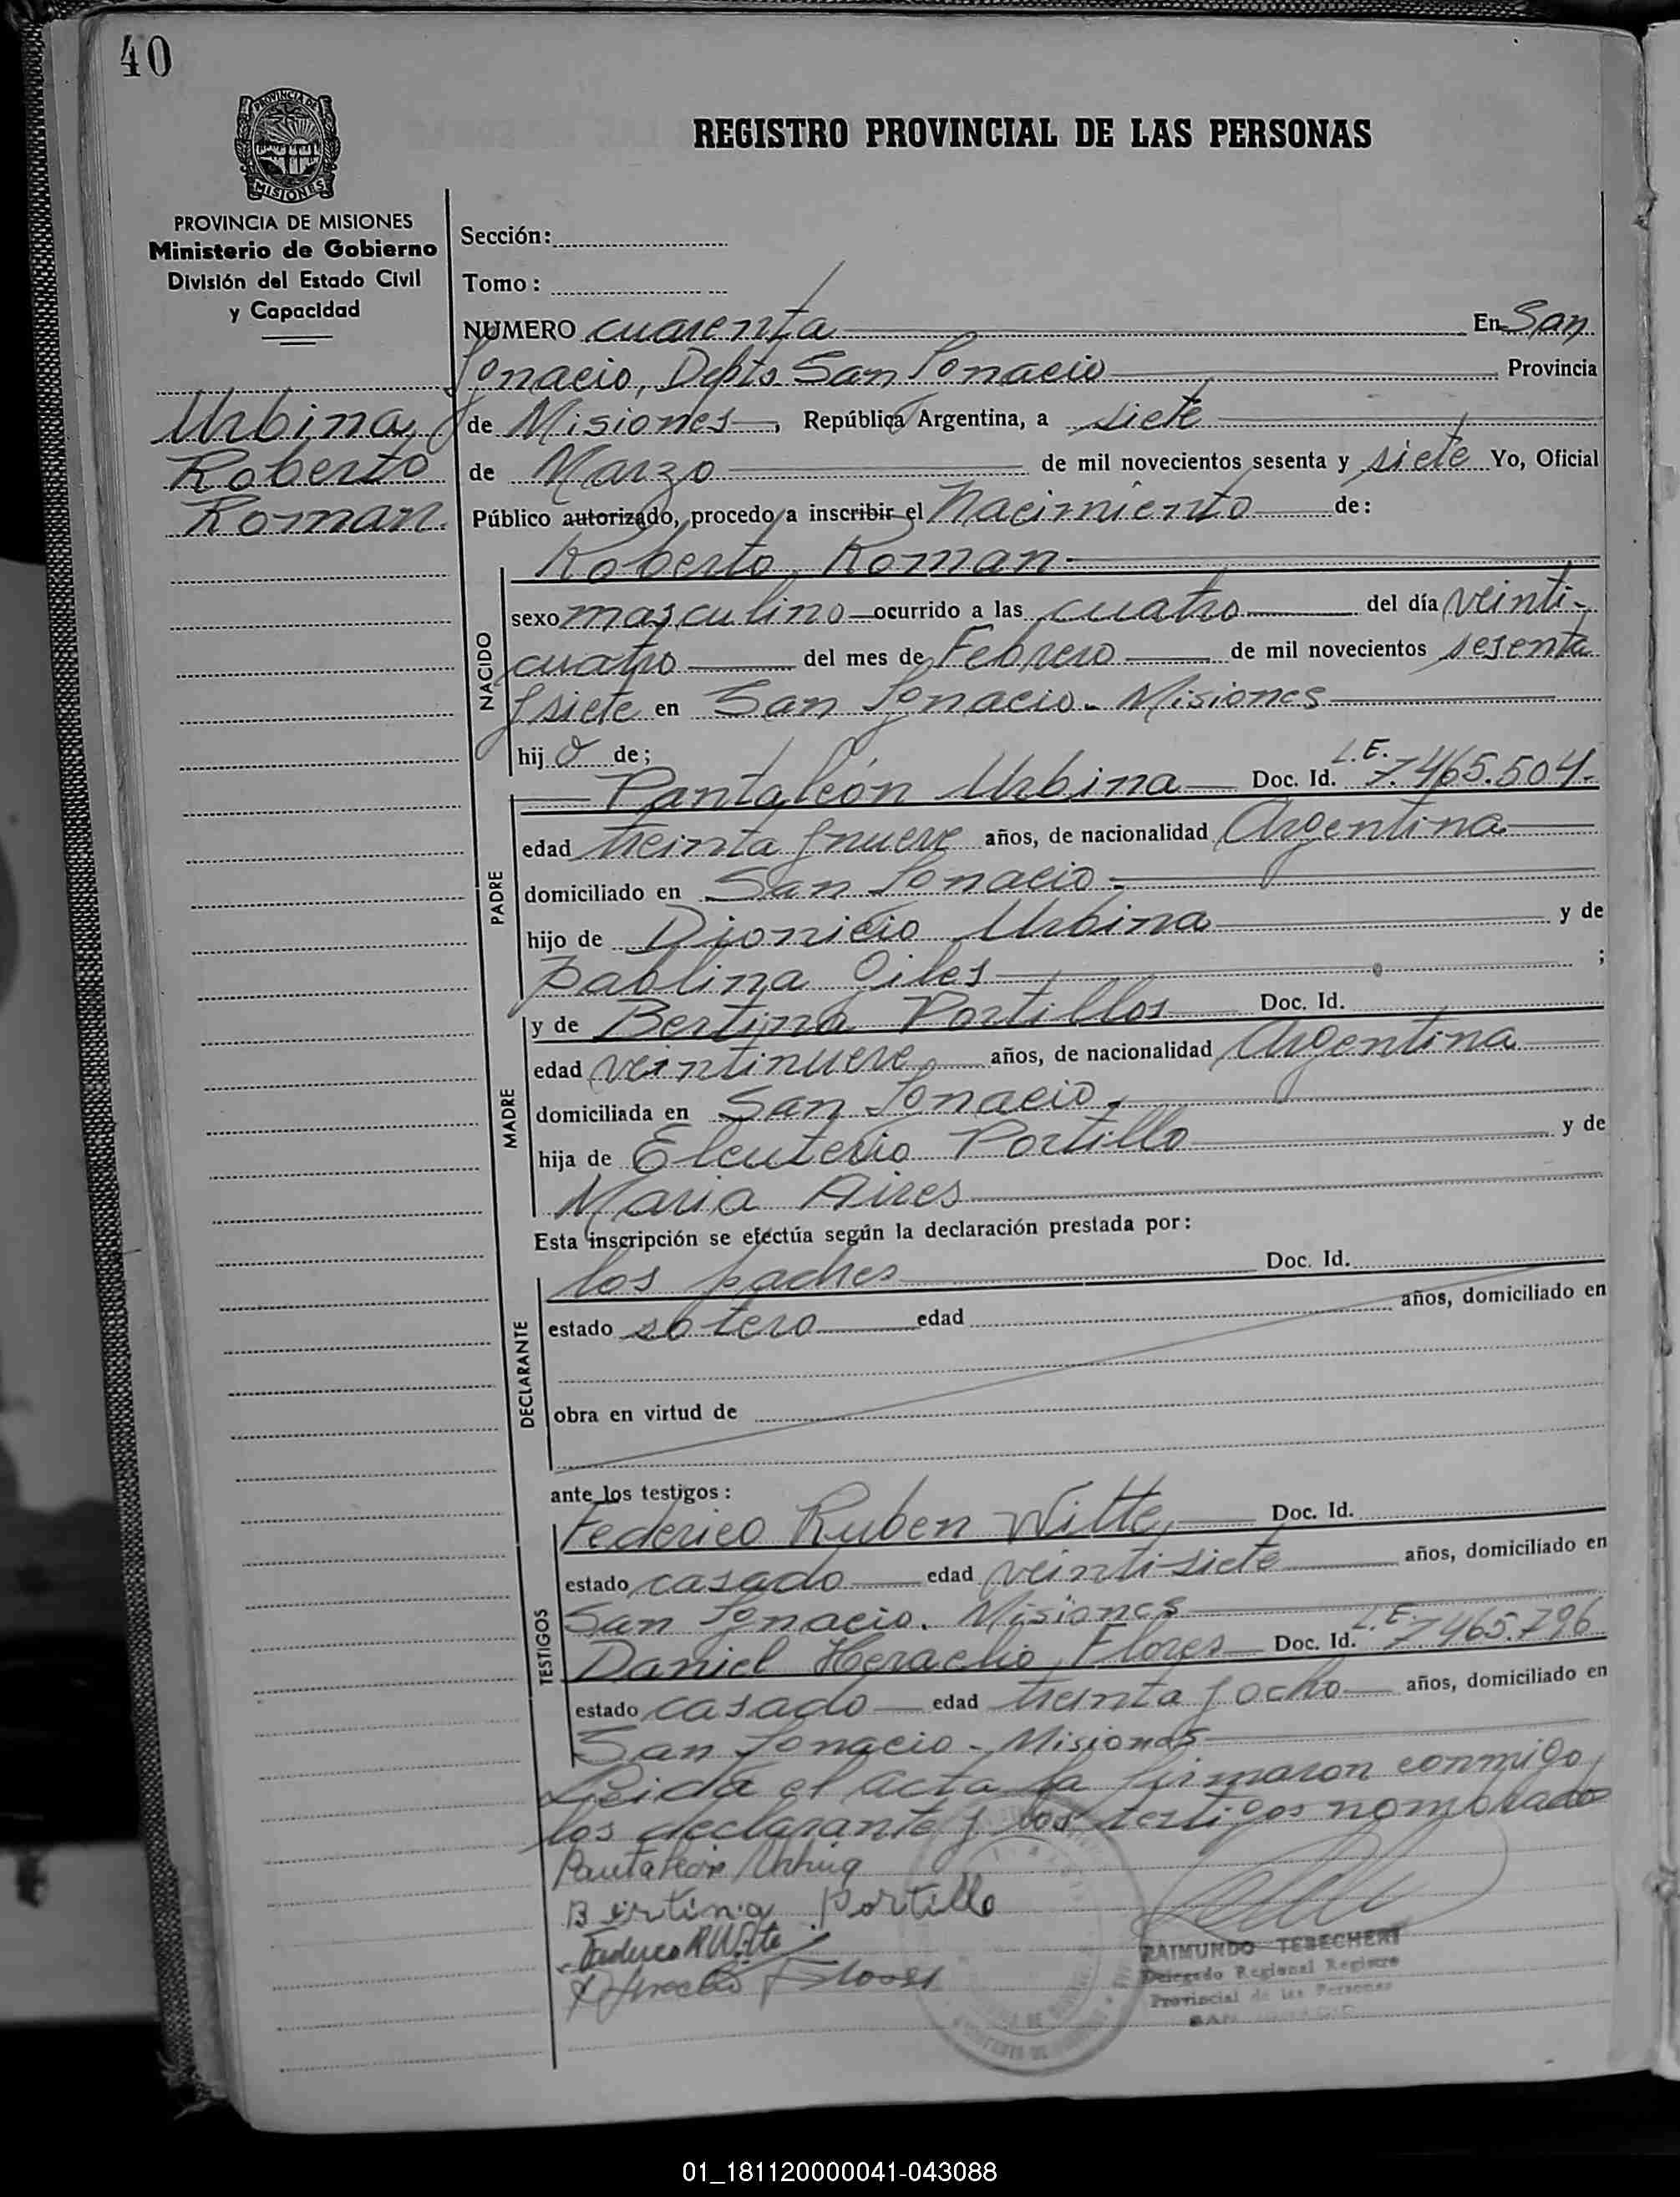 40
PROVINCIA DE
MISIONES
REGISTRO PROVINCIAL DE LAS PERSONAS
PROVINCIA DE MISIONES
Ministerio de Gobierno
División del Estado Civil
y Capacidad
Urbina,
Roberto
Roman.
Sección:
Tomo:
NUMERO cuarenta En San
Ignacio, Depto. San Ignacio Provincia
de Misiones, República Argentina, a siete
de Marzo de mil novecientos sesenta y siete Yo, Oficial
Público autorizado, procedo a inscribir el Nacimiento de:
NACIDO
Roberto Roman
sexo masculino ocurrido a las cuatro del día veinti-
cuatro del mes de Febrero de mil novecientos sesenta
y siete en San Ignacio - Misiones
hij o de;
PADRE
Pantaleón Urbina Doc. Id. L.E. 7.465.504.-
edad treinta y nueve años, de nacionalidad Argentina
domiciliado en San Ignacio.-
hijo de Dionicio Urbina y de
Pablina Giles ;
MADRE
y de Bertina Portillos Doc. Id.
edad veintinueve años, de nacionalidad Argentina
domiciliada en San Ignacio.
hija de Eleuterio Portillo y de
Maria Aires
Esta inscripción se efectúa según la declaración prestada por:
DECLARANTE
los padres Doc. Id.
estado sotero edad años, domiciliado en
obra en virtud de
ante los testigos:
TESTIGOS
Federico Ruben Witte, Doc. Id.
estado casado edad veintisiete años, domiciliado en
San Ignacio. Misiones
Daniel Heraclio Flores Doc. Id. L.E. 7465.796
estado casado edad treinta y ocho años, domiciliado en
San Ignacio - Misiones
Leida el acta la firmaron conmigo
los declarante y los testigos nombrado
Pantaleon Urbina
Bertina Portillo
Federico R Witte
Heraclio Flores
RAIMUNDO TEBECHERI
Delegado Regional Registro
Provincial de las Personas
SAN IGNACIO
01_181120000041-043088